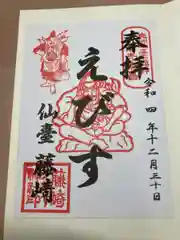 奉拝
令和四年十二月三十日
えびす
仙臺 藤崎